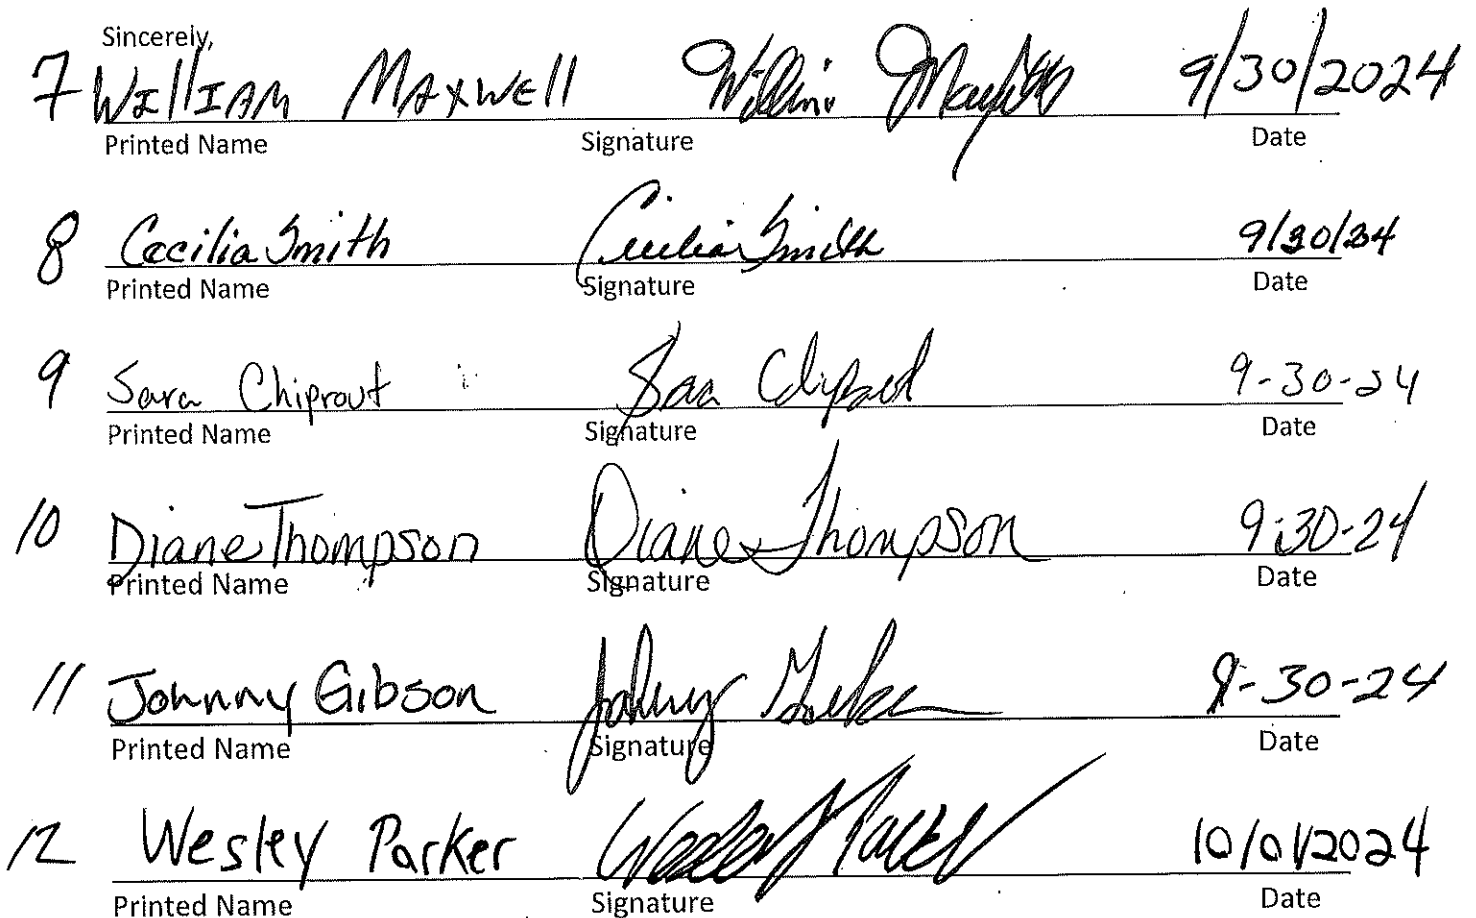 Sincerely,
7 William Maxwell William Maxwell 9/30/2024
Printed Name Signature Date
8 Cecilia Smith Cecilia Smith 9/30/24
Printed Name Signature Date
9 Sara Chiprout Sara Chiprout 9-30-24
Printed Name Signature Date
10 Diane Thompson Diane Thompson 9-30-24
Printed Name Signature Date
11 Johnny Gibson Johnny 9-30-24
Printed Name Signature Date
12 Wesley Parker Wesley Parker 10/01/2024
Printed Name Signature Date